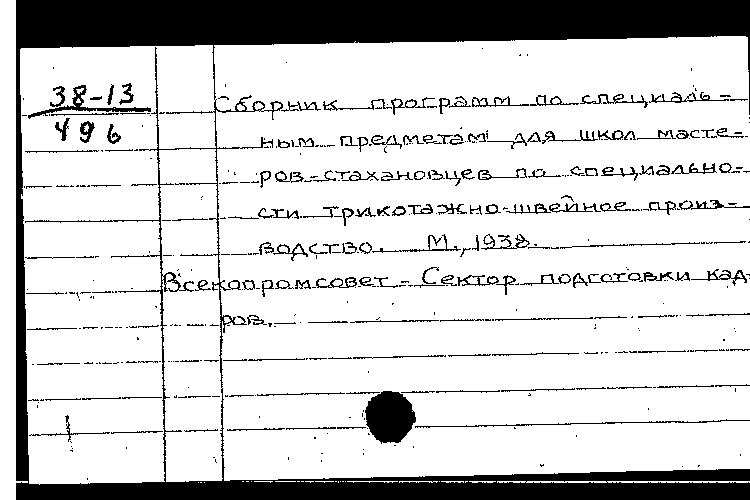 38-13
496
Сборник программ по специаль-
ным предметам для школ масте-
ров-стахановцев по специально-
сти трикотажно-швейное произ-
водство. М., 1938.
Всекопромсовет - Сектор подготовки кад-
ров.